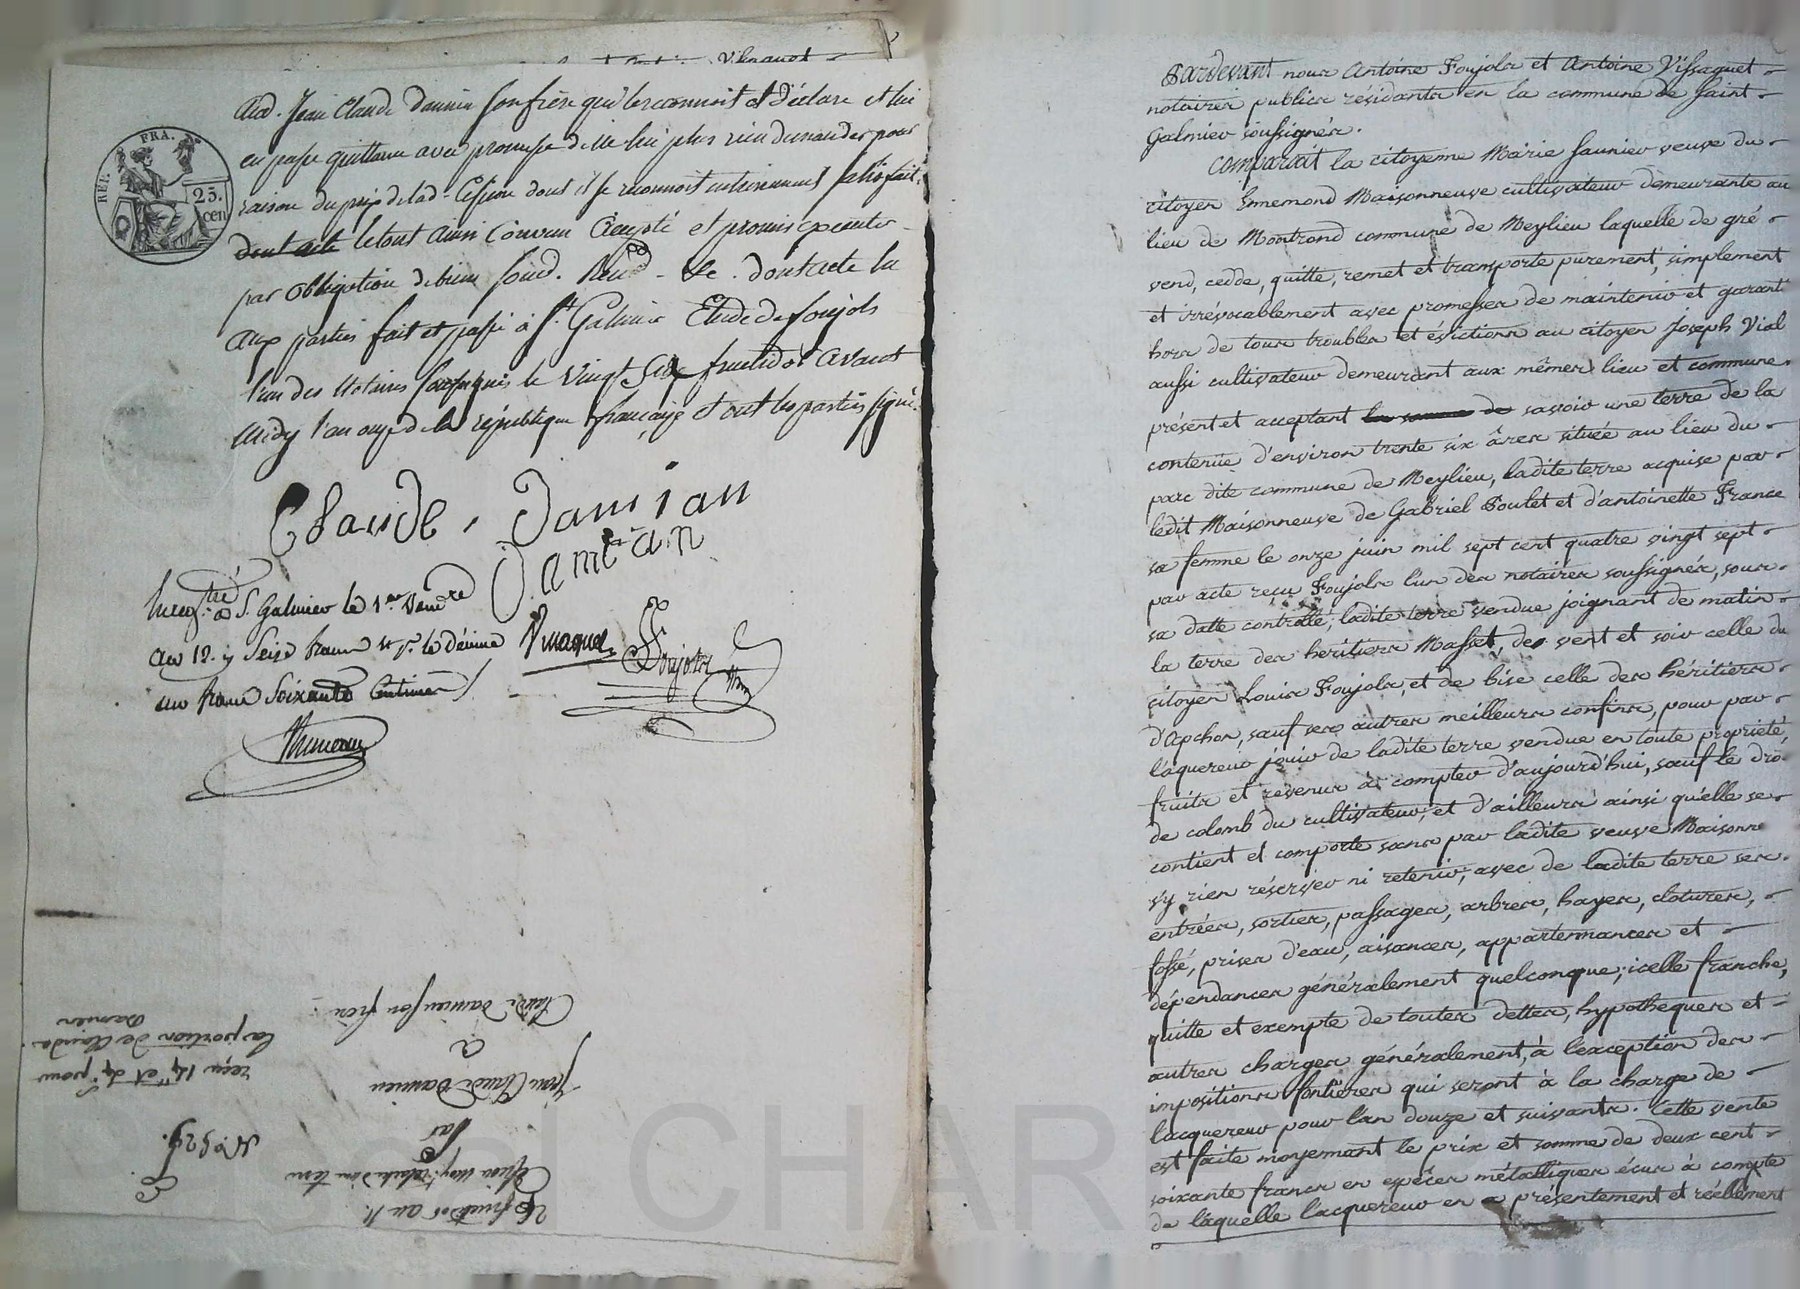 Aud. Jean Claude Damien son frère qu'il reconnoit et déclare et lui
en passe quittance avec promesse de ne lui plus rien demander pour
raison du prix de lad. Cession dont il se reconnoit entièrement satisfait.
dont acte le tout ainsi Convenu Accepté et promis executer
par obligation de biens soud. Rend. &c. dont acte lu
aux parties fait et passé à St. Galmier Etude de foujols
l'un des Notaires soussignés le vingt six fructidor avant
midy l'an onze de la république française et ont les parties signé.
REP. FRA.
25.
cen
Claude, Damian
J. Damian
Vissaguet
Foujols
Enregtré à S. Galmier le 1er Vendre
an 12. y Seize francs le décime
un franc Soixante Centimes
26 fructidor an 11.
Par
Jean Claude Damien
a
Claude Damien son frère
N° 529.
reçu 14# et dy pour
la portion de Claude
Damien
Pardevant nous Antoine Foujols et Antoine Vissaguet
notaires publics résidants en la commune de Saint
Galmier soussignés.
Comparait la citoyenne Marie Saunier veuve du
citoyen Ennemond Maisonneuve cultivateur demeurante au
lieu de Montrond commune de Meylieu laquelle de gré
vend, cedde, quitte, remet et transporte purement, simplement
et irrévocablement avec promesses de maintenir et garant
hors de tous troubles et évictions au citoyen Joseph Vial
aussi cultivateur demeurant aux mêmes lieu et commune
présent et acceptant la somme de savoir une terre de la
contenüe d'environ trente six âres située au lieu du
parc dite commune de Meylieu, ladite terre acquise par
ledit Maisonneuve de Gabriel Poulet et d'antoinette France
sa femme le onze juin mil sept cent quatre vingt sept
par acte reçu Foujols l'un des notaires soussignés, sous
sa datte contrôllé; ladite terre vendue joignant de matin
la terre des héritiers Masset, de vent et soir celle du
citoyen Louis Foujols, et de bise celle des héritiers
d'Apchon, sauf ses autres meilleurs confins, pour par
l'aquereur jouir de ladite terre vendue en toute propriété,
fruits et revenus à compter d'aujourd'hui, sauf le dro
de colomb du cultivateur, et d'ailleurs ainsi qu'elle se
contient et comporte sans par ladite veuve Maisonne
s'y rien réserver ni retenir, avec de ladite terre ses
entrées, sorties, passages, arbres, hayes, clotures,
fossé, prises d'eau, aisances, appartennances et
dépendances généralement quelconque; icelle franche,
quitte et exempte de toutes dettes, hypotheques et
autres charges généralement, à l'exception des
impositions fontières qui seront à la charge de
lacquereur pour l'an douze et suivants. Cette vente
est faite moyennant le prix et somme de deux cent
soixante francs en espèces métalliques écus à compte
de laquelle lacquereur en a présentement et réellement
CHAR